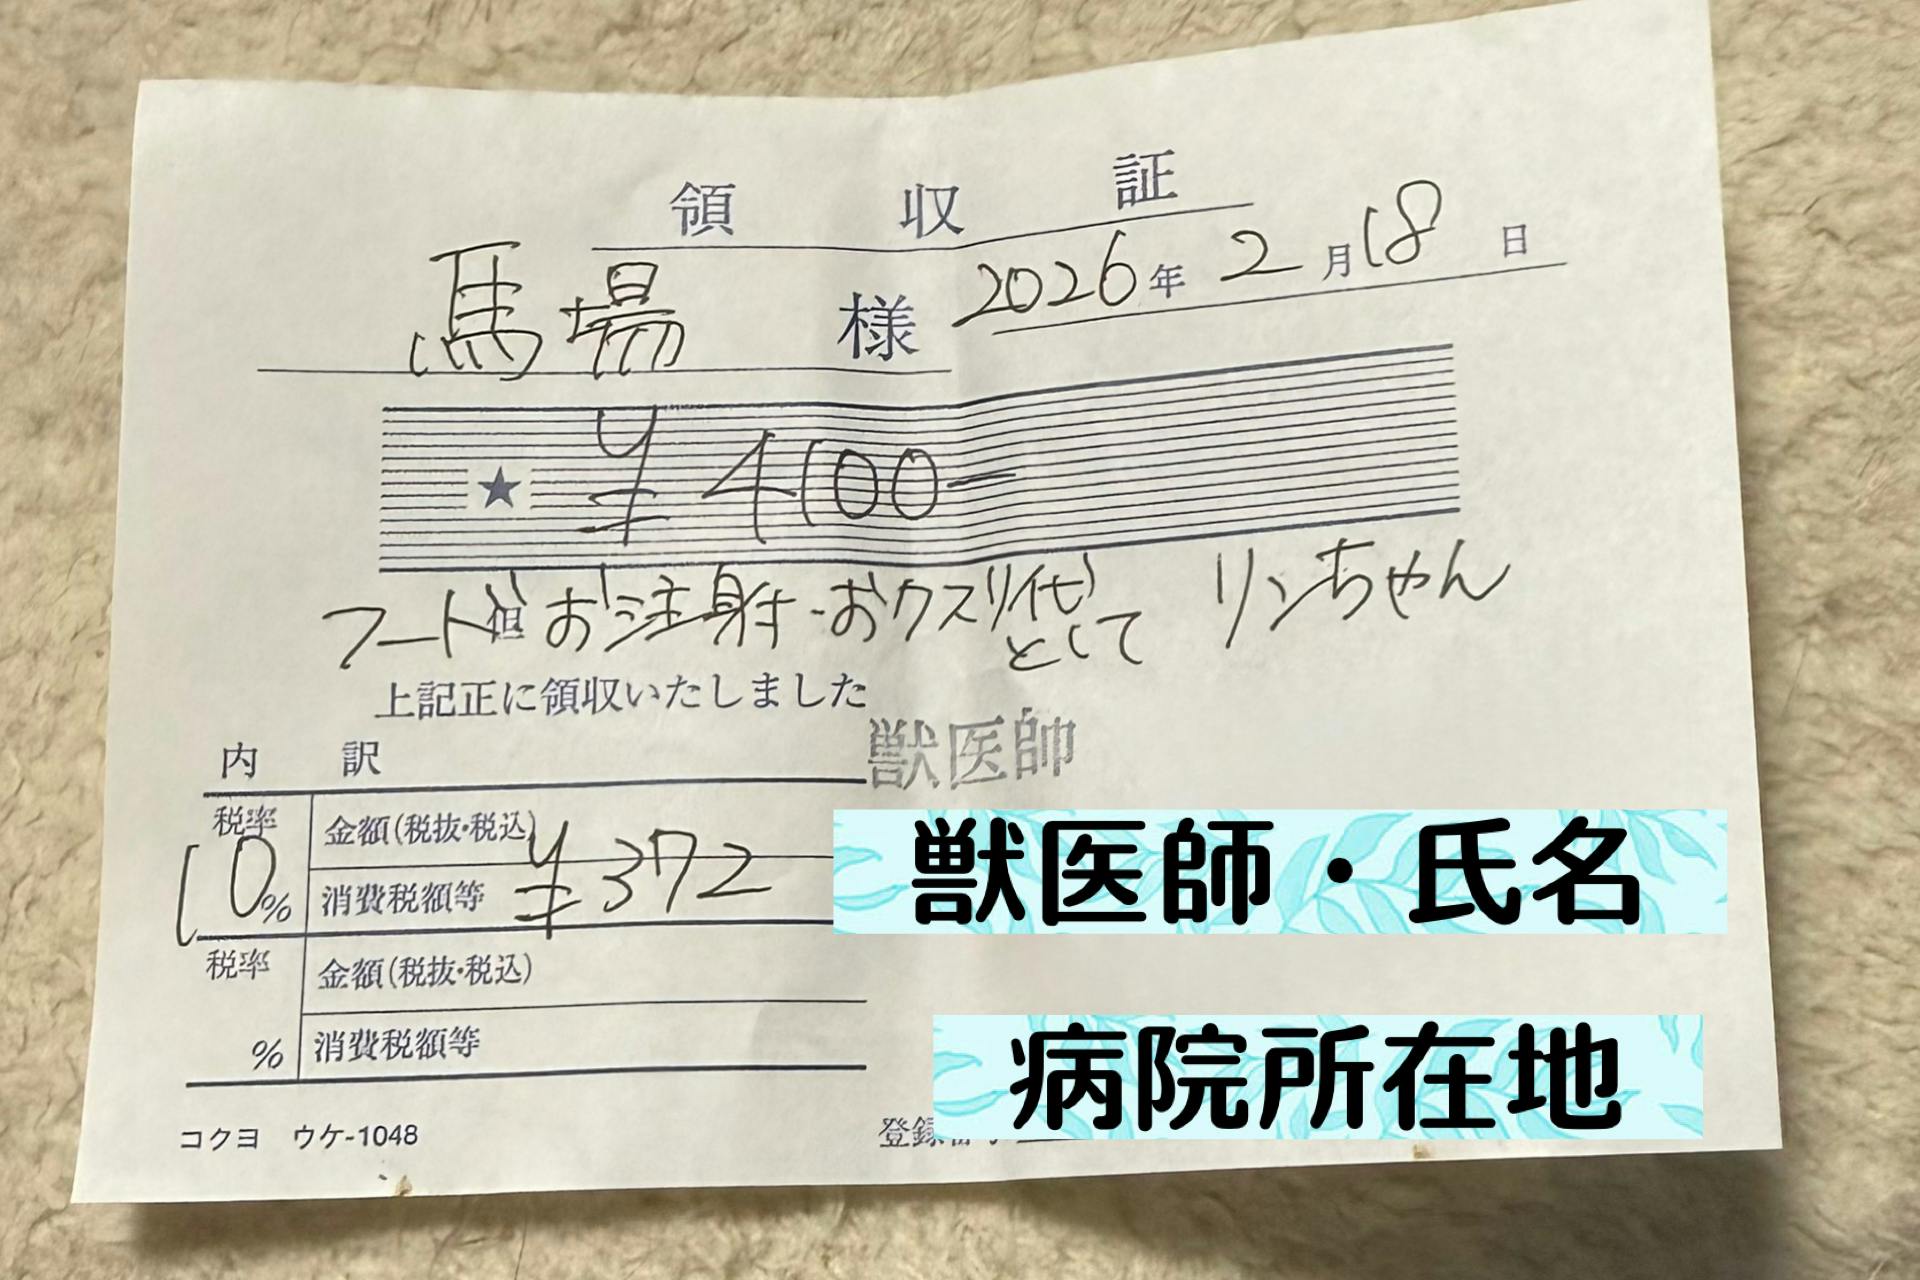 領収証
馬場 様 2026年2月18日
★ ¥4100-
フード 但 お注射・おクスリ代として リンちゃん
上記正に領収いたしました
獣医師
内訳
税率 金額(税抜・税込)
10% 消費税額等 ¥372
税率 金額(税抜・税込)
% 消費税額等
獣医師・氏名
病院所在地
コクヨ ウケ-1048 登録